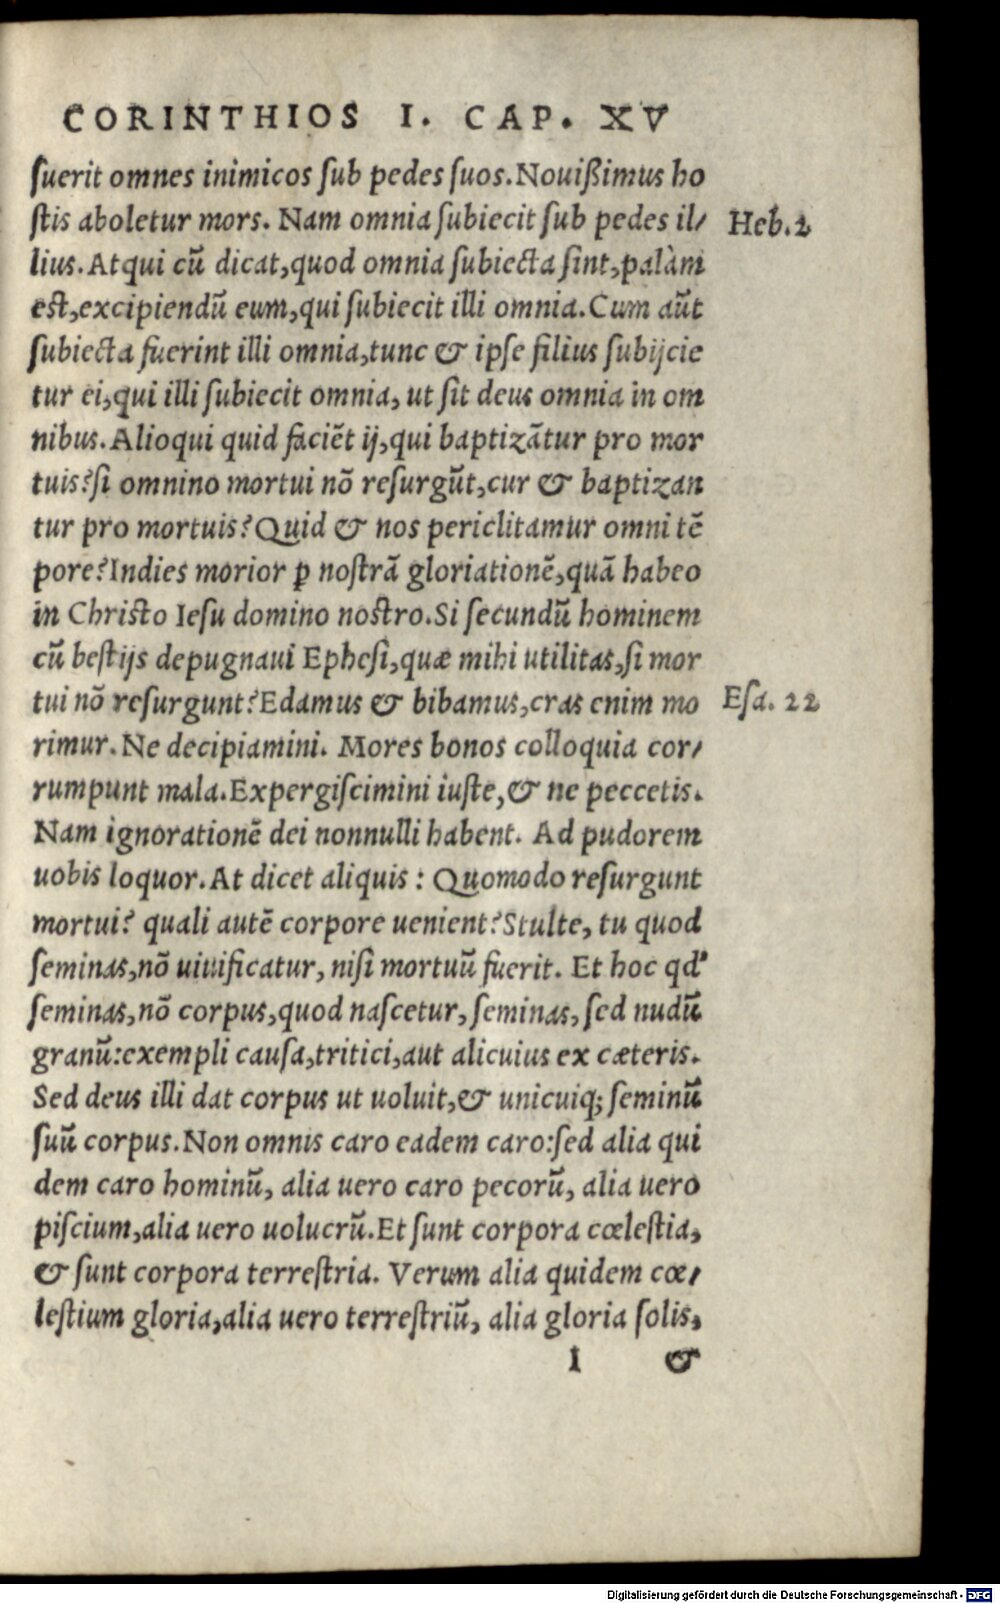 CORINTHIOS I. CAP. XV
ſuerit omnes inimicos ſub pedes ſuos. Nouißimus ho
ſtis aboletur mors. Nam omnia ſubiecit ſub pedes il/
Heb. 2
lius. Atqui cũ dicat, quod omnia ſubiecta ſint, palàm
est, excipiendũ eum, qui ſubiecit illi omnia. Cum aũt
ſubiecta fuerint illi omnia, tunc & ipſe filius ſubijcie
tur ei, qui illi ſubiecit omnia, ut ſit deus omnia in om
nibus. Alioqui quid faciẽt ij, qui baptizãtur pro mor
tuis? ſi omnino mortui nõ reſurgũt, cur & baptizan
tur pro mortuis? Quid & nos periclitamur omni tẽ
pore? Indies morior ꝑ noſtrã gloriationẽ, quã habeo
in Christo Ieſu domino noſtro. Si ſecundũ hominem
cũ beſtijs depugnaui Epheſi, quæ mihi utilitas, ſi mor
tui nõ reſurgunt? Edamus & bibamus, cras enim mo
Eſa. 22
rimur. Ne decipiamini. Mores bonos colloquia cor/
rumpunt mala. Expergiſcimini iuſte, & ne peccetis.
Nam ignorationẽ dei nonnulli habent. Ad pudorem
uobis loquor. At dicet aliquis: Quomodo reſurgunt
mortui? quali autẽ corpore uenient? Stulte, tu quod
ſeminas, nõ uiuificatur, niſi mortuũ fuerit. Et hoc qd'
ſeminas, nõ corpus, quod naſcetur, ſeminas, ſed nudũ
granũ: exempli cauſa, tritici, aut alicuius ex cæteris.
Sed deus illi dat corpus ut uoluit, & unicuiq; ſeminũ
ſuũ corpus. Non omnis caro eadem caro: ſed alia qui
dem caro hominũ, alia uero caro pecorũ, alia uero
piſcium, alia uero uolucrũ. Et ſunt corpora cœleſtia,
& ſunt corpora terreſtria. Verum alia quidem cœ/
leſtium gloria, alia uero terreſtriũ, alia gloria ſolis,
I &
Digitalisierung gefördert durch die Deutsche Forschungsgemeinschaft - DFG